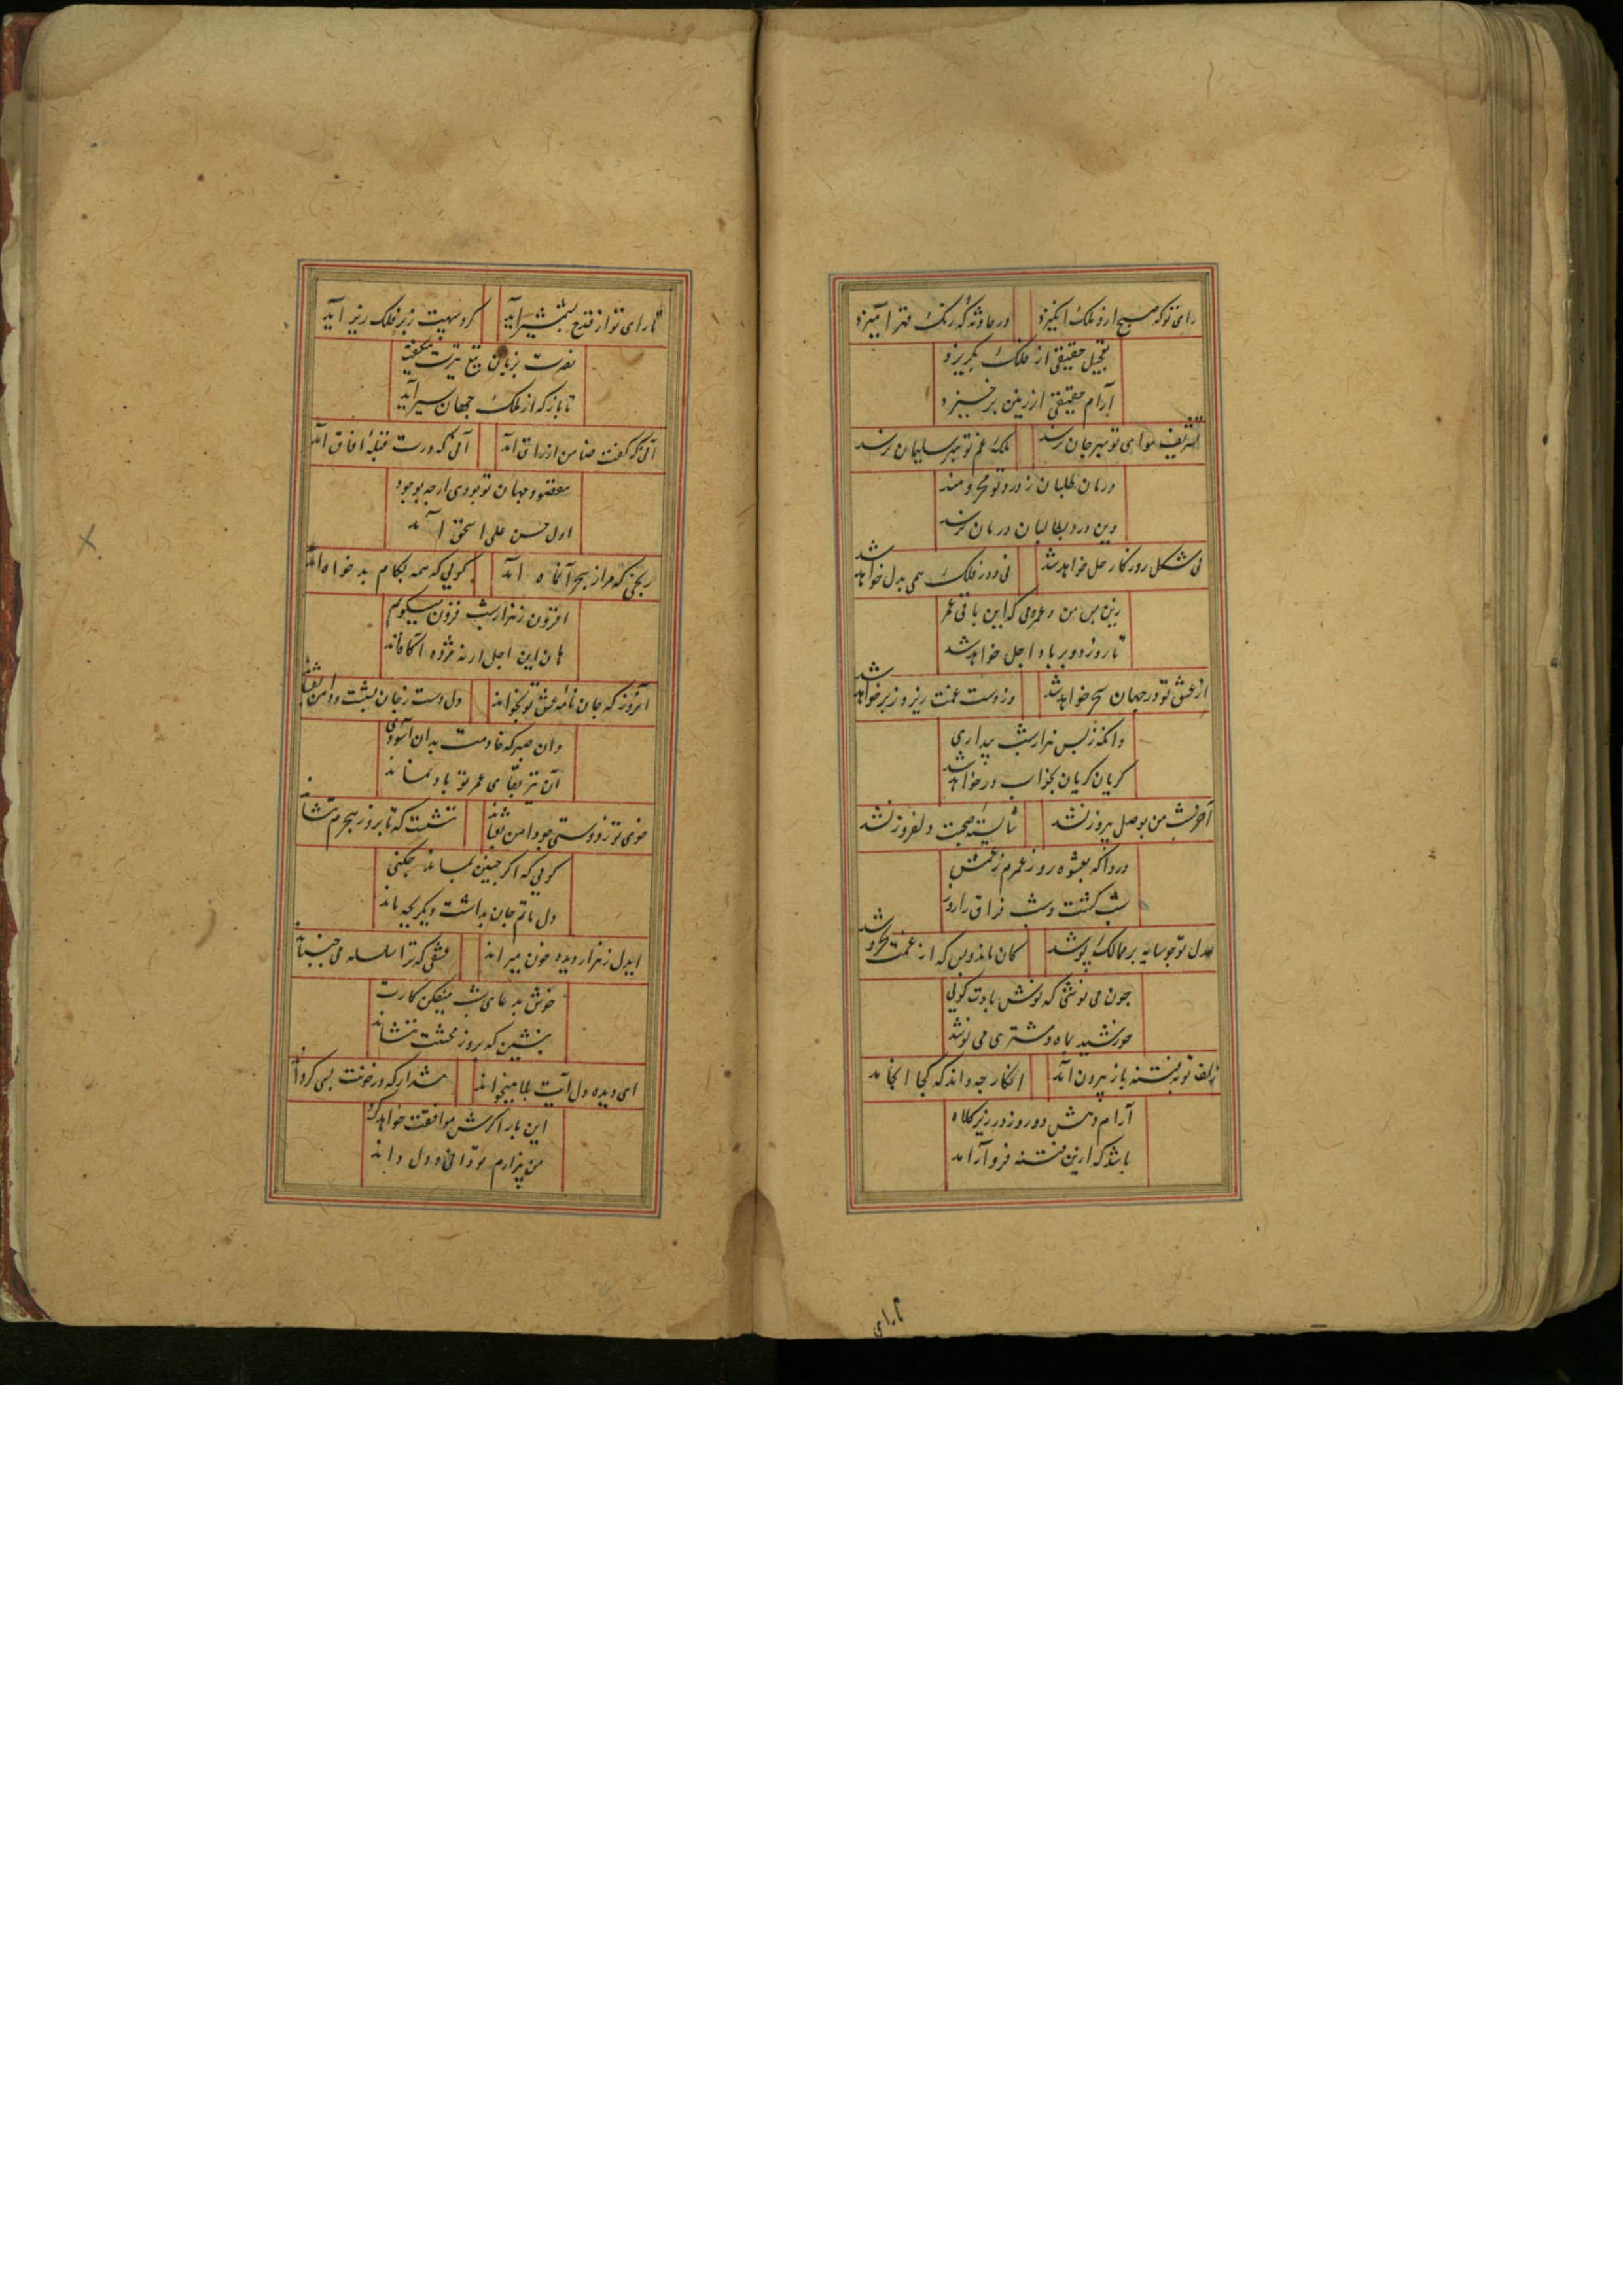 رای تو که صبح ارذ ملک انگیزد در حادثه که رنک قهر آمیزد
تعجیل حقیقی از فلک بگریزد
آرام حقیقی از زمین برخیزد
تشریف هوای تو بهر جان نرسد ملک غم تو بهر سلیمان نرسد
درمان طلبان ز درد تو محرومند
وین درد بطالبان درمان نرسد
نی مشکل روزکار حل خواهد شد نی دور فلک همی بدل خواهد شد
زین پس من و عمر می که این باقی عمر
تا روز دو بر باد اجل خواهد شد
از عشق تو در جهان سمر خواهد شد وز دست غمت زیر و زبر خواهد شد
وانکه ز پس هزار شب بیداری
کریان کریان بخواب در خواهد شد
آخر شب من بوصل پیروز نشد شایسته صحبت دلفروز نشد
دردا که بعشوه روز عمرم ز غمش
شب کشت و شب فراق را روز
عدل تو چو سایه بر ممالک پوشد کان ماند و بس که از غمت بخروشد
چون می نوشی که نوش بادت کوئی
خورشید بماه مشتری می نوشد
زلف تو بفتنه باز بیرون آمد انکار چه داند که کجا انجامد
آرام و هش دو روز در زیر کلاه
باشد که ازین فتنه فرو آرامد
تارای
تا رای تو از قدح بشمشیر آید کرد سپهت زبر فلک زیر آید
نصرت بزبان تیغ تیزت میگفت
تا باز که از ملک جهان سیر آید
آن که کفت ضامن ارزاق آمد آنی که درت قبله آفاق آمد
مقصود جهان تو بودی ارچه بوجود
اول حسن علی اسحق آمد
رنجی که مرا ز هجر آن ماه آمد کوئی که همه بکام بدخواه آمد
افزون ز هزار شب فزون میگویم
هان این اجل ار نه مژده آگاه آمد
آنروز که جان نامه عشق تو بخواند دل دست ز جان بشست و دامن بفشاند
وان صبر که خادمت بدان آسودی
آن نیز بقای عمر تو باد نماند
خوی تو ز دوستی چو دامن بفشاند ننشست که تا بروز هجرم بنشاند
کوئی که اکر چنین بماند چکنی
دل ماتم جان بداشت دیکر بچه ماند
ای دل ز هزار دیده خون میراند عشقی که ترا سلسله می جنباند
خوش بدعای شب میفکن کارت
بنشین که بروز محشرت ننشاند
ای دیده دل آیت بلا میخواند هشدار که در خونت بسی کرداند
این بار اکرش موافقت خواهد کرد
من بیزارم تو دانی و دل داند